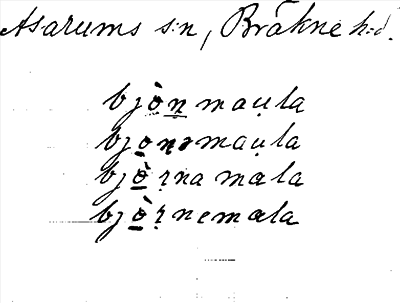 Asarums s:n, Bräkne h:d.
bjò̱ṉmau̞la
bjo̱nəmau̞la
bjò̱ṛnamala
bjò̱ṛnemala